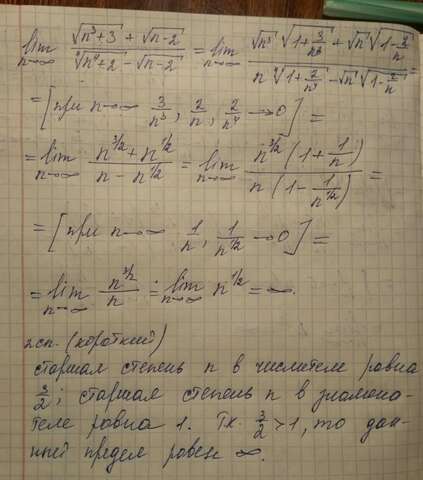 lim n→∞ (√(n³+3) + √(n-2)) / (⁴√(n⁴+2) - √(n-2)) = lim n→∞ (√n³ √(1+3/n³) + √n √(1-2/n)) / (n ⁴√(1+2/n⁴) - √n √(1-2/n)) =
= [при n→∞ 3/n³, 2/n, 2/n⁴ → 0] =
= lim n→∞ (n^(3/2) + n^(1/2)) / (n - n^(1/2)) = lim n→∞ (n^(3/2) (1 + 1/n)) / (n (1 - 1/n^(1/2))) =
= [при n→∞ 1/n, 1/n^(1/2) → 0] =
= lim n→∞ n^(3/2) / n = lim n→∞ n^(1/2) = ∞.
2 сп. (короткий)
старшая степень n в числителе равна
3/2; старшая степень n в знамена-
теле равна 1. Т.к. 3/2 > 1, то дан-
ный предел равен ∞.